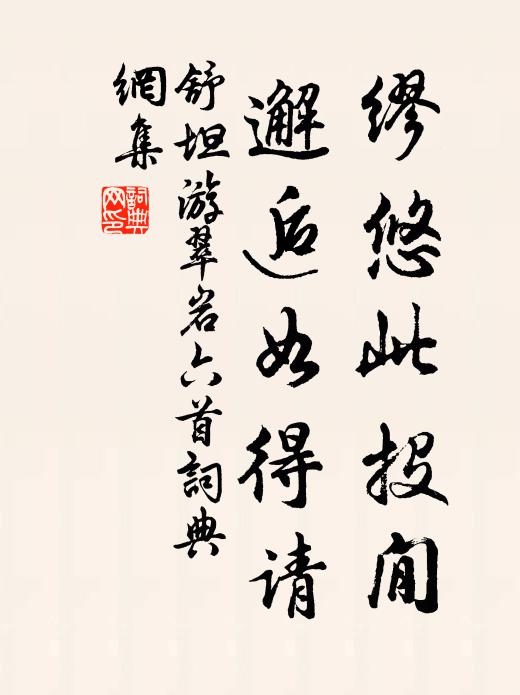 繆悠此投閒
邂逅如得请
舒坦游翠岩六首詞典
網集
詞典网印